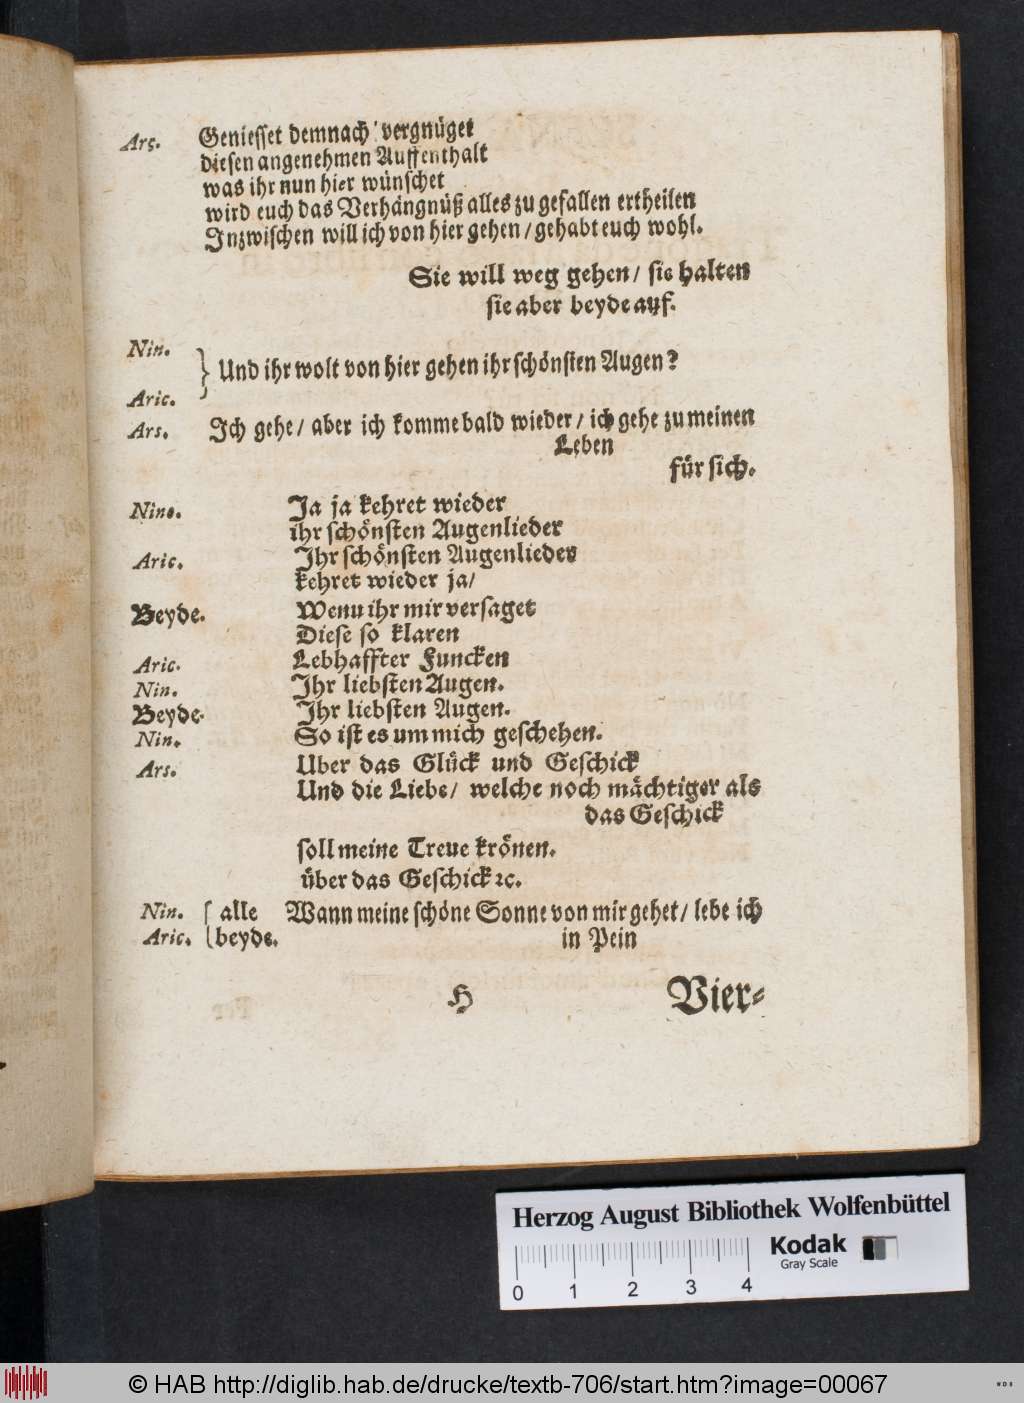 Ars. Geniesset demnach vergnüget
diesen angenehmen Auffenthalt
was ihr nun hier wünschet
wird euch das Verhängnüß alles zu gefallen ertheilen
Inzwischen will ich von hier gehen/ gehabt euch wohl.
Sie will weg gehen/ sie halten
sie aber beyde auf.
Nin.
} Und ihr wolt von hier gehen ihr schönsten Augen?
Aric.
Ars. Ich gehe/ aber ich komme bald wieder/ ich gehe zu meinen
Leben
für sich.
Nine. Ja ja kehret wieder
ihr schönsten Augenlieder
Aric. Ihr schönsten Augenlieder
kehret wieder ja/
Beyde. Wenu ihr mir versaget
Diese so klaren
Aric. Lebhaffter Funcken
Nin. Ihr liebsten Augen.
Beyde. Ihr liebsten Augen.
Nin. So ist es um mich geschehen.
Ars. Uber das Glück und Geschick
Und die Liebe/ welche noch mächtiger als
das Geschick
soll meine Treue krönen.
über das Geschick ꝛc.
Nin. { alle Wann meine schöne Sonne von mir gehet/ lebe ich
Aric. { beyde. in Pein
H Vier-
Herzog August Bibliothek Wolfenbüttel
Kodak
Gray Scale
0 1 2 3 4
© HAB http://diglib.hab.de/drucke/textb-706/start.htm?image=00067